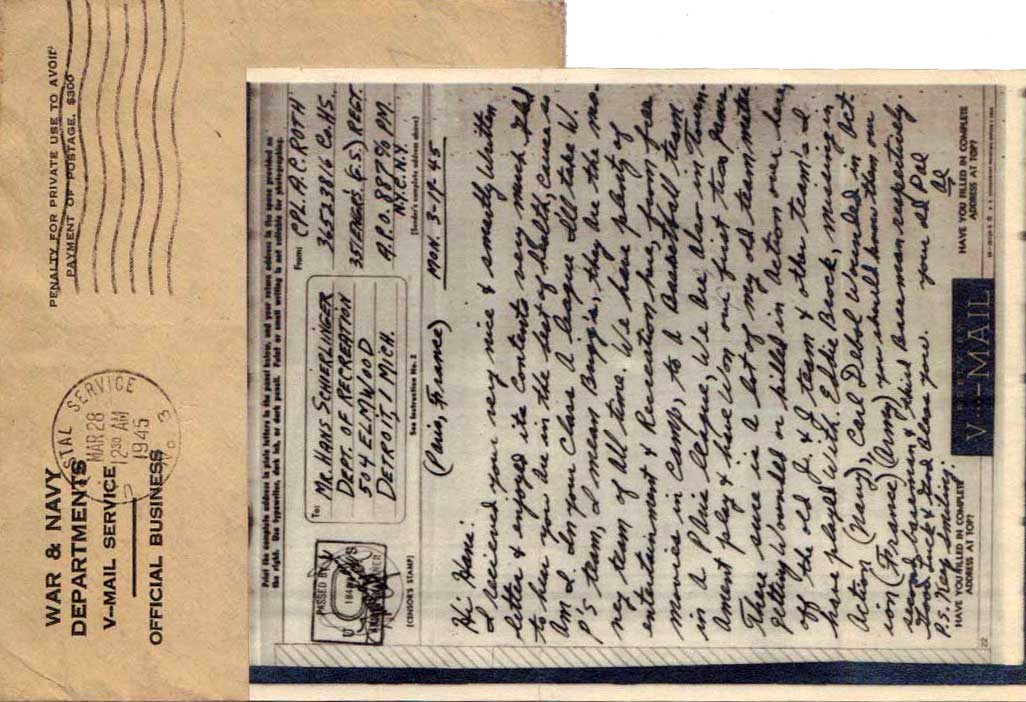 WAR & NAVY
DEPARTMENTS
V-MAIL SERVICE
OFFICIAL BUSINESS
POSTAL SERVICE
MAR 28
12 30 AM
1945
3
PENALTY FOR PRIVATE USE TO AVOID
PAYMENT OF POSTAGE, $300
Print the complete address in plain letters in the panel below, and your return address in the space provided on
the right. Use typewriter, dark ink, or dark pencil. Faint or small writing is not suitable for photographing.
PASSED BY
(CENSOR'S STAMP)
To:
MR. HANS SCHIERLINGER
DEPT. OF RECREATION
504 ELMWOOD
DETROIT, 1 MICH.
See Instruction No. 2
From:
CPL. A.C. ROTH
36523816 Co. HS.
35 ENGR'S (F.S.) REGT
A.P.O. 887 % P.M.
N.Y.C. N.Y.
(Sender's complete address above)
(Paris, France)
MON. 3-19-45
Hi Hans:
I recieved your very nice & smartly written
letter & enjoyed its Contents very much. Glad
to hear you are in the best of health, Cause so
am I. In your Class A league Ill take W.
P's team, I mean they are the mo-
ney team of all time. We have plenty of
entertainment & Recreation here, from free
movies in Camp, to a basketball team
in a Paris league, We are also in Tourn-
ament play & have Won our first two games.
There sure is a lot of my old team mates
getting Wounded or killed in Action over here,
off the old J. & J. team & other team's I
have played With. Eddie Brock, missing in
Action (Navy), Carl Debol Wounded in Act
ion (France) (Army) you should know them our
second baseman & third baseman respectively.
Good Luck & God bless you. your old Pal
P.S. Keep smiling. Al
HAVE YOU FILLED IN COMPLETE
ADDRESS AT TOP?
V···—MAIL
HAVE YOU FILLED IN COMPLETE
ADDRESS AT TOP?
22